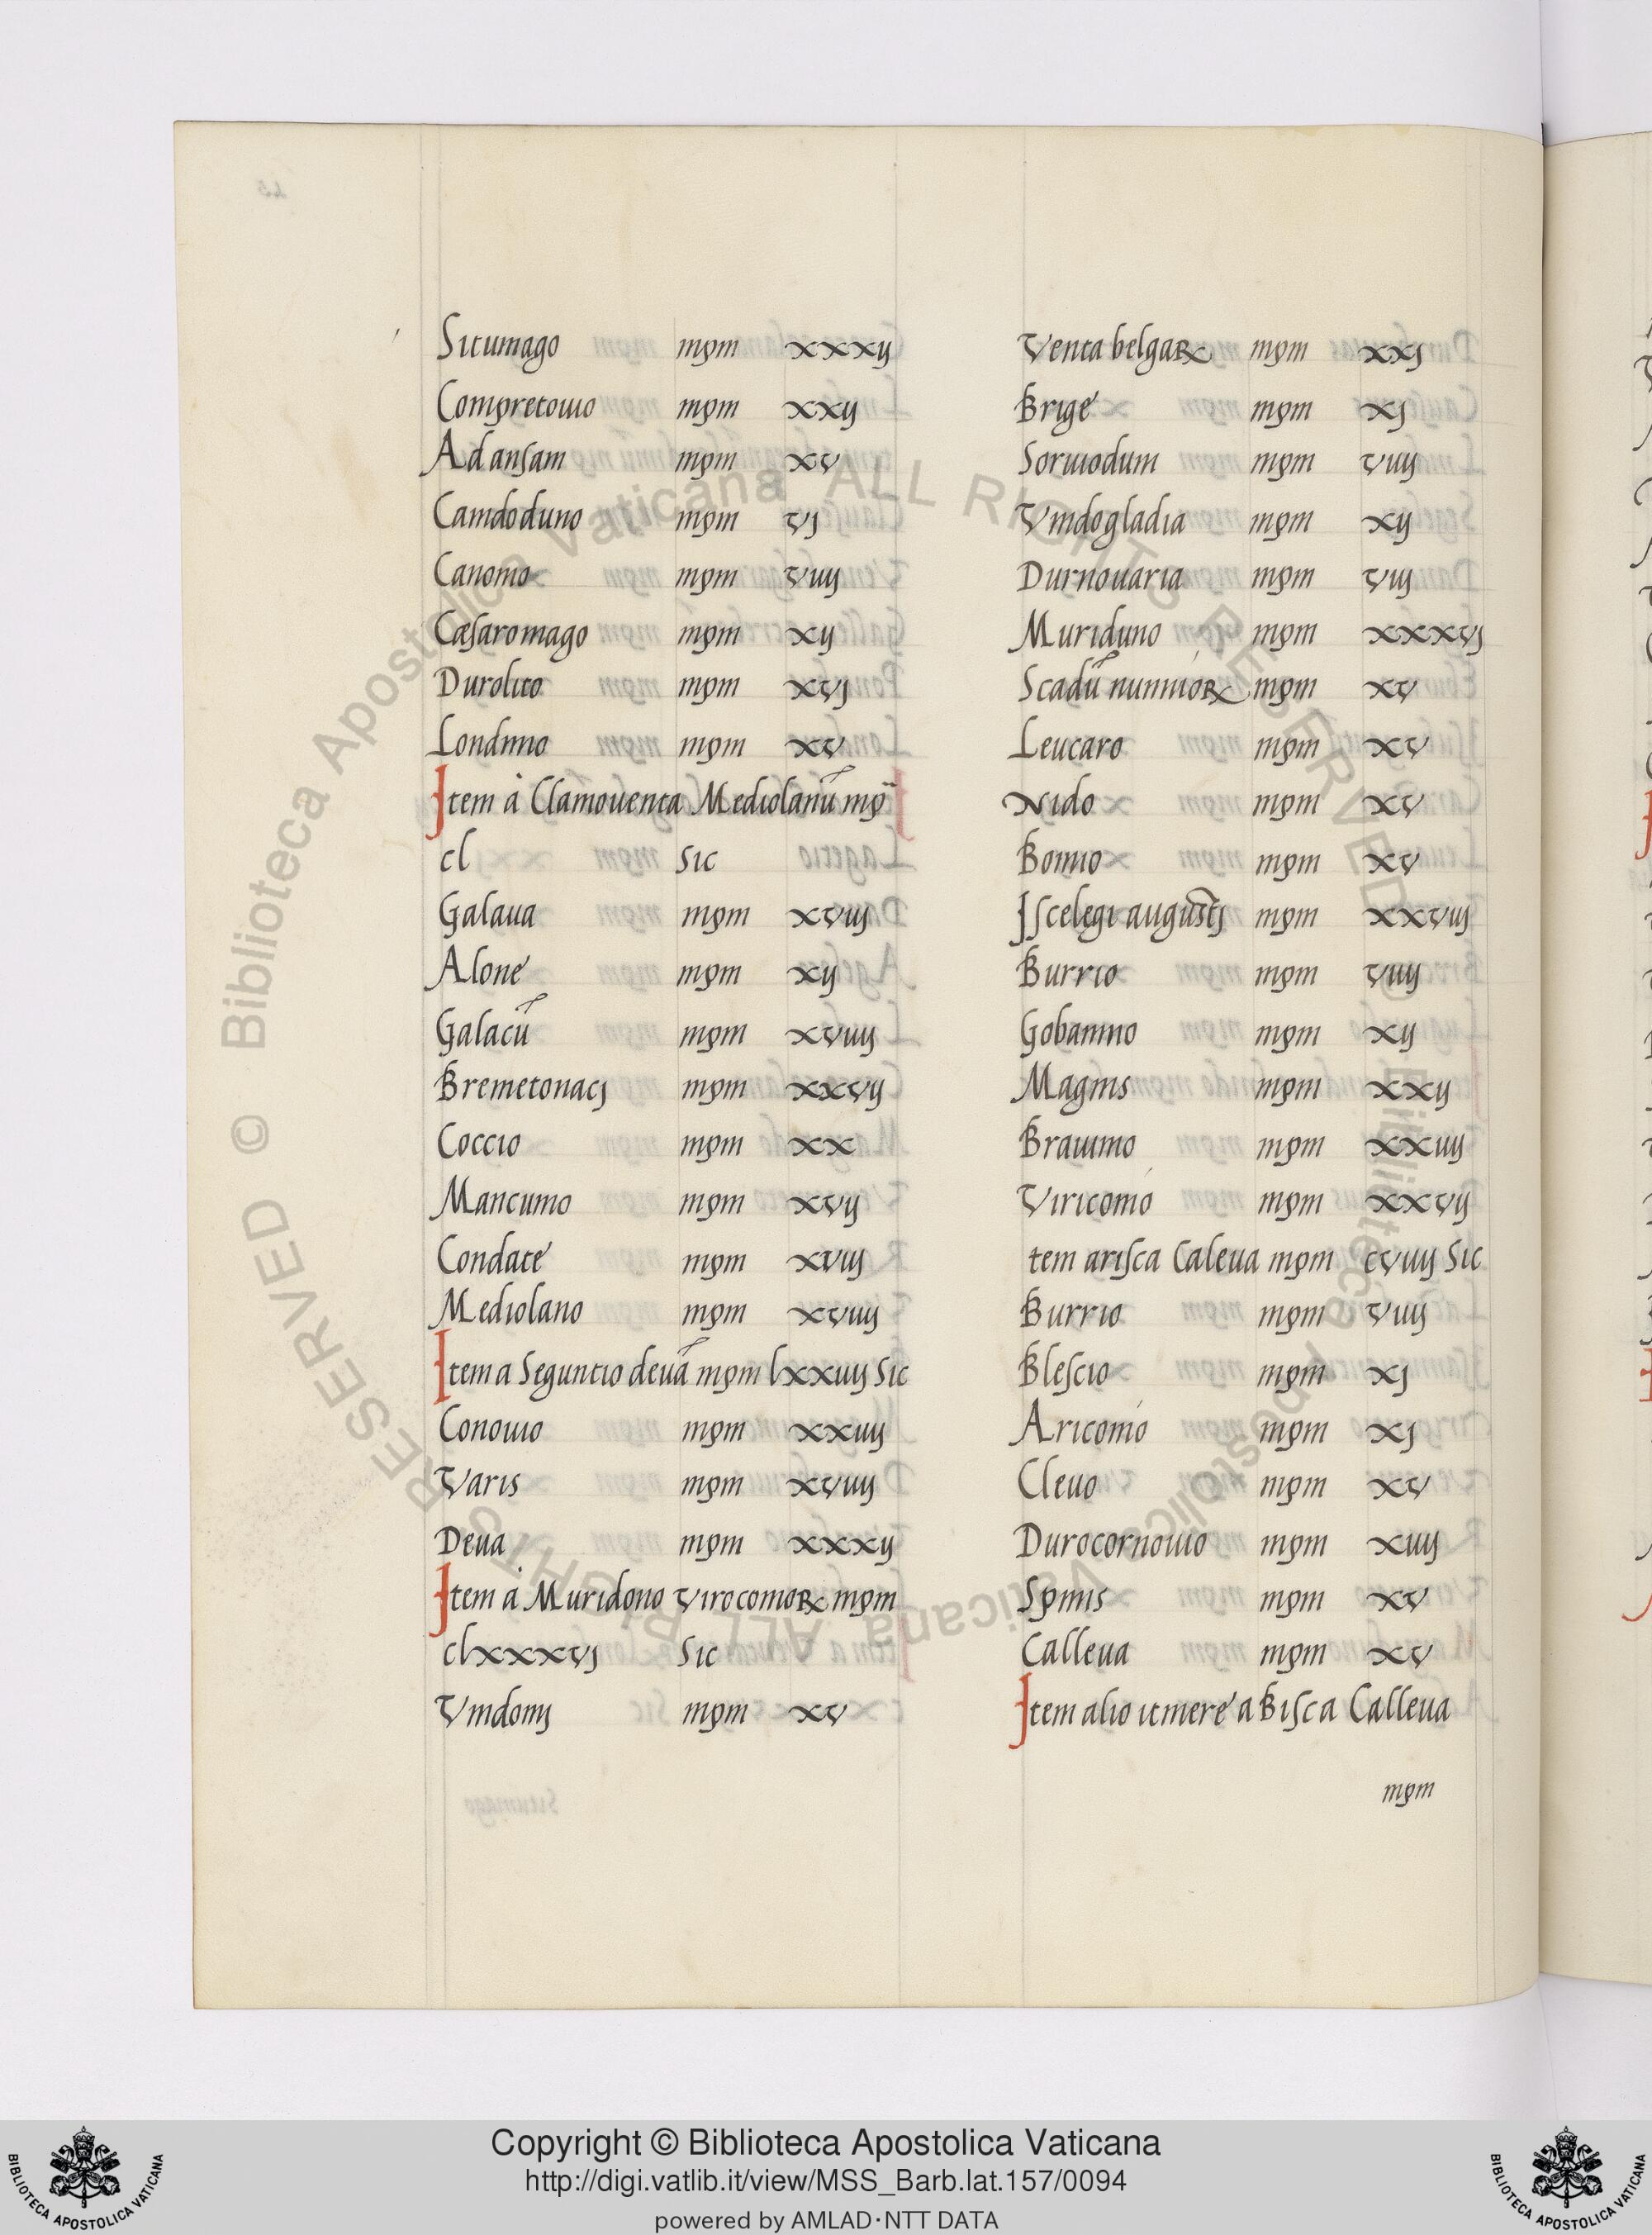 Situmago mpm xxxij
Compretouio mpm xxij
Ad ansam mpm xv
Camdoduno mpm vj
Canonio mpm viiij
Cæsaromago mpm xij
Durolito mpm xvj
Londinio mpm xv
Item à Clamouenta Mediolanũ mp̃
cl Sic
Galaua mpm xviij
Alone mpm xij
Galacũ mpm xviiij
Bremetonacj mpm xxvij
Coccio mpm xx
Mancunio mpm xvij
Condate mpm xviij
Mediolano mpm xviiij
Item a Seguntio deuã mpm lxxiiij Sic
Conouio mpm xxiiij
Varis mpm xviiij
Deua mpm xxxij
Item à Muridono Viroconioꝝ mpm
clxxxvj Sic
Vindonij mpm xv
Venta belgaꝝ mpm xxj
Brige mpm xj
Soruiodum mpm viiij
Vindogladia mpm xij
Durnouaria mpm viij
Muriduno mpm xxxvj
Scadũ nunnioꝝ mpm xv
Leucaro mpm xv
Nido mpm xv
Bomio mpm xv
Iscelegi augustj mpm xxviij
Burrio mpm viiij
Gobannio mpm xij
Magnis mpm xxij
Brauinio mpm xxiiij
Viriconió mpm xxvij
tem arisca Caleua mpm cviiij Sic
Burrio mpm viiij
Blescio mpm xj
Ariconió mpm xj
Cleuo mpm xv
Durocornouio mpm xiiij
Spinis mpm xv
Calleua mpm xv
Item alio itinere a Bisca Calleua
mpm
Copyright © Biblioteca Apostolica Vaticana
http://digi.vatlib.it/view/MSS_Barb.lat.157/0094
powered by AMLAD·NTT DATA